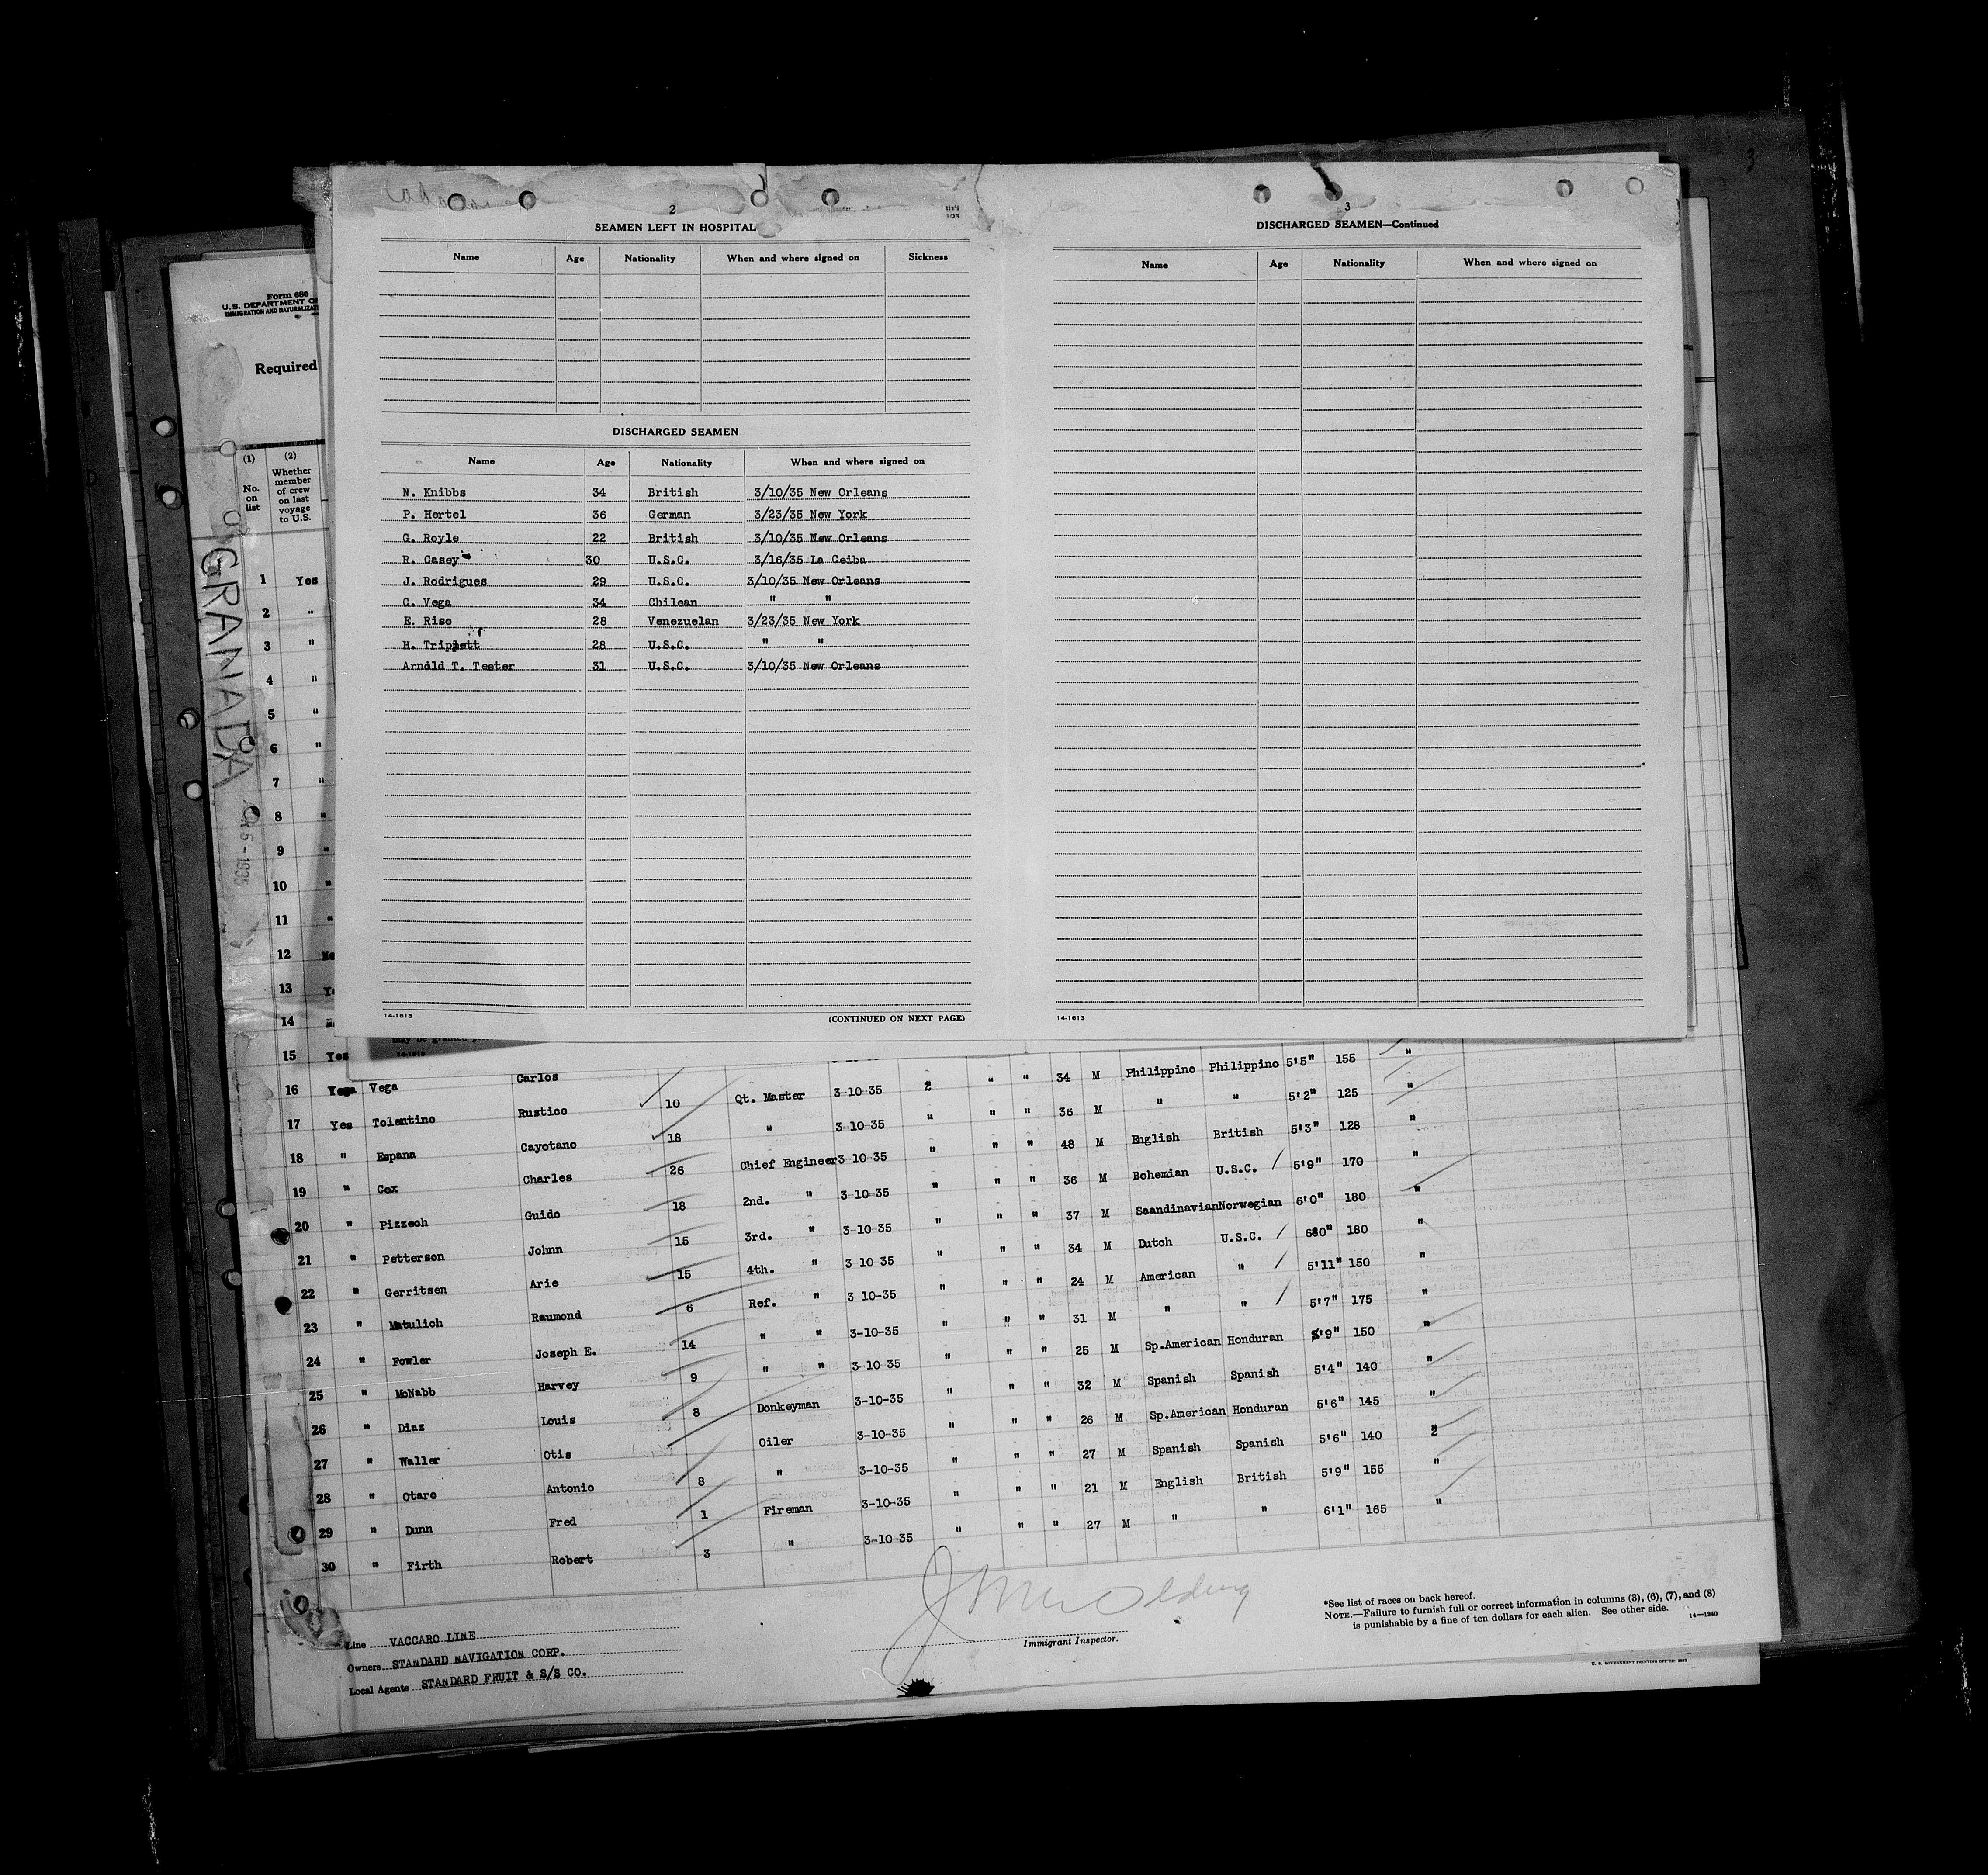 2
SEAMEN LEFT IN HOSPITAL
Name Age Nationality When and where signed on Sickness
DISCHARGED SEAMEN
Name Age Nationality When and where signed on
N. Knibbs 34 British 3/10/35 New Orleans
P. Hertel 36 German 3/23/35 New York
G. Royle 22 British 3/10/35 New Orleans
R. Casey 30 U.S.C. 3/16/35 La Ceiba
J. Rodrigues 29 U.S.C. 3/10/35 New Orleans
C. Vega 34 Chilean " "
E. Riso 28 Venezuelan 3/23/35 New York
H. Trippett 28 U.S.C. " "
Arnold T. Teeter 31 U.S.C. 3/10/35 New Orleans
14-1613
(CONTINUED ON NEXT PAGE)
3
DISCHARGED SEAMEN—Continued
Name Age Nationality When and where signed on
14-1613
3
Form 680
U.S. DEPARTMENT
IMMIGRATION AND
Required
(1) (2)
No. on list
Whether member of crew on last voyage to U.S.
GRANADA
5 - 1935
1 Yes
2 "
3 "
4 "
5 "
6 "
7 "
8 "
9 "
10 "
11 "
12
13
14
may be granted
14-1613
15 Yes
16 Yes Vega Carlos 10 Qt. Master 3-10-35 2 " " 34 M Philippino Philippino 5'5" 155 "
17 Yes Tolentino Rustico 18 " 3-10-35 " " " 36 M " " 5'2" 125 "
18 " Espana Cayetano 26 Chief Engineer 3-10-35 " " " 48 M English British 5'3" 128 "
19 " Cox Charles 18 2nd. " 3-10-35 " " " 36 M Bohemian U.S.C. 5'9" 170 "
20 " Pizzech Guido 15 3rd. " 3-10-35 " " " 37 M Scandinavian Norwegian 6'0" 180 "
21 " Petterson Johnn 15 4th. " 3 10 35 " " " 34 M Dutch U.S.C. 680" 180 "
22 " Gerritsen Arie 6 Ref. " 3 10-35 " " " 24 M American " 5'11" 150 "
23 " Matulich Raumond 14 " " 3-10-35 " " " 31 M " " 5'7" 175 "
24 " Fowler Joseph E. 9 " " 3-10-35 " " " 25 M Sp.American Honduran 5'9" 150 "
25 " McNabb Harvey 8 Donkeyman 3-10-35 " " " 32 M Spanish Spanish 5'4" 140 "
26 " Diaz Louis Oiler 3-10-35 " " " 26 M Sp.American Honduran 5'6" 145 "
27 " Waller Otis 8 " 3-10-35 " " " 27 M Spanish Spanish 5'6" 140 2
28 " Otaro Antonio 1 Fireman 3-10-35 " " " 21 M English British 5'9" 155 "
29 " Dunn Fred 3 " 3-10-35 " " " 27 M " " 6'1" 165 "
30 " Firth Robert
Line VACCARO LINE
Owners STANDARD NAVIGATION CORP.
Local Agents STANDARD FRUIT & S/S CO.
Immigrant Inspector.
*See list of races on back hereof.
NOTE.—Failure to furnish full or correct information in columns (3), (6), (7), and (8)
is punishable by a fine of ten dollars for each alien. See other side.
14—1240
U. S. GOVERNMENT PRINTING OFFICE: